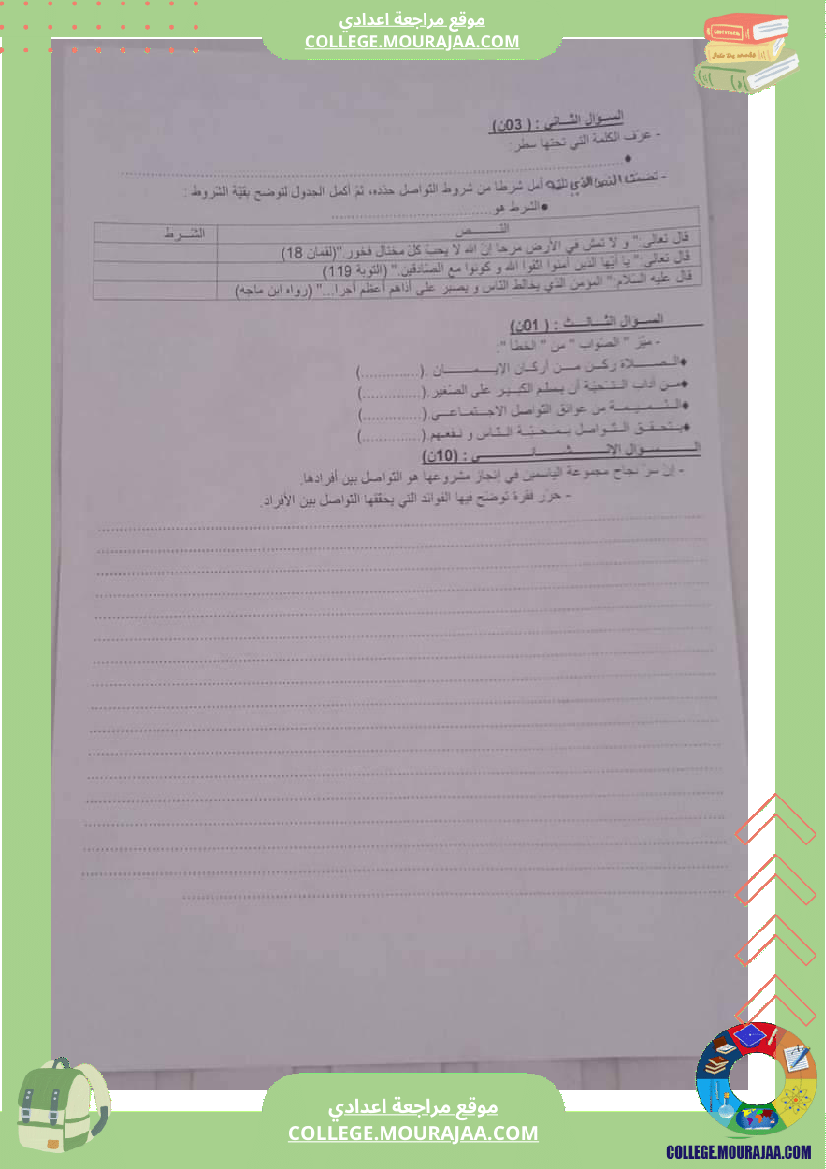 موقع مراجعة اعدادي
COLLEGE.MOURAJAA.COM
السؤال الثاني : (03ن)
- عرّف الكلمة التي تحتها سطر:
- تضمّن النصّ الذي أمل شرطا من شروط التواصل حدّده، ثمّ أكمل الجدول لتوضح بقيّة الشروط :
●الشرط هو
النص الشرط
قال تعالى:" و لا تمش في الأرض مرحا إنّ الله لا يحبّ كلّ مختال فخور."(لقمان 18)
قال تعالى:" يا أيّها الذين آمنوا اتّقوا الله و كونوا مع الصّادقين." (التوبة 119)
قال عليه السّلام:" المؤمن الذي يخالط النّاس و يصبر على أذاهم أعظم أجرا..." (رواه ابن ماجه)
السؤال الثالث : (01ن)
- ميّز " الصّواب " من " الخطأ ":
♦الصلاة ركن من أركان الإيمان .(..............)
♦من آداب التحيّة أن يسلم الكبير على الصّغير.(..............)
♦النميمة من عوائق التواصل الاجتماعي.(..............)
♦يتحقق التواصل بمحبّة النّاس و نفعهم.(..............)
السؤال الانشائي : (10ن)
- إنّ سرّ نجاح مجموعة الياسمين في إنجاز مشروعها هو التواصل بين أفرادها.
- حرّر فقرة توضّح فيها الفوائد التي يحقّقها التواصل بين الأفراد.
موقع مراجعة اعدادي
COLLEGE.MOURAJAA.COM
COLLEGE.MOURAJAA.COM